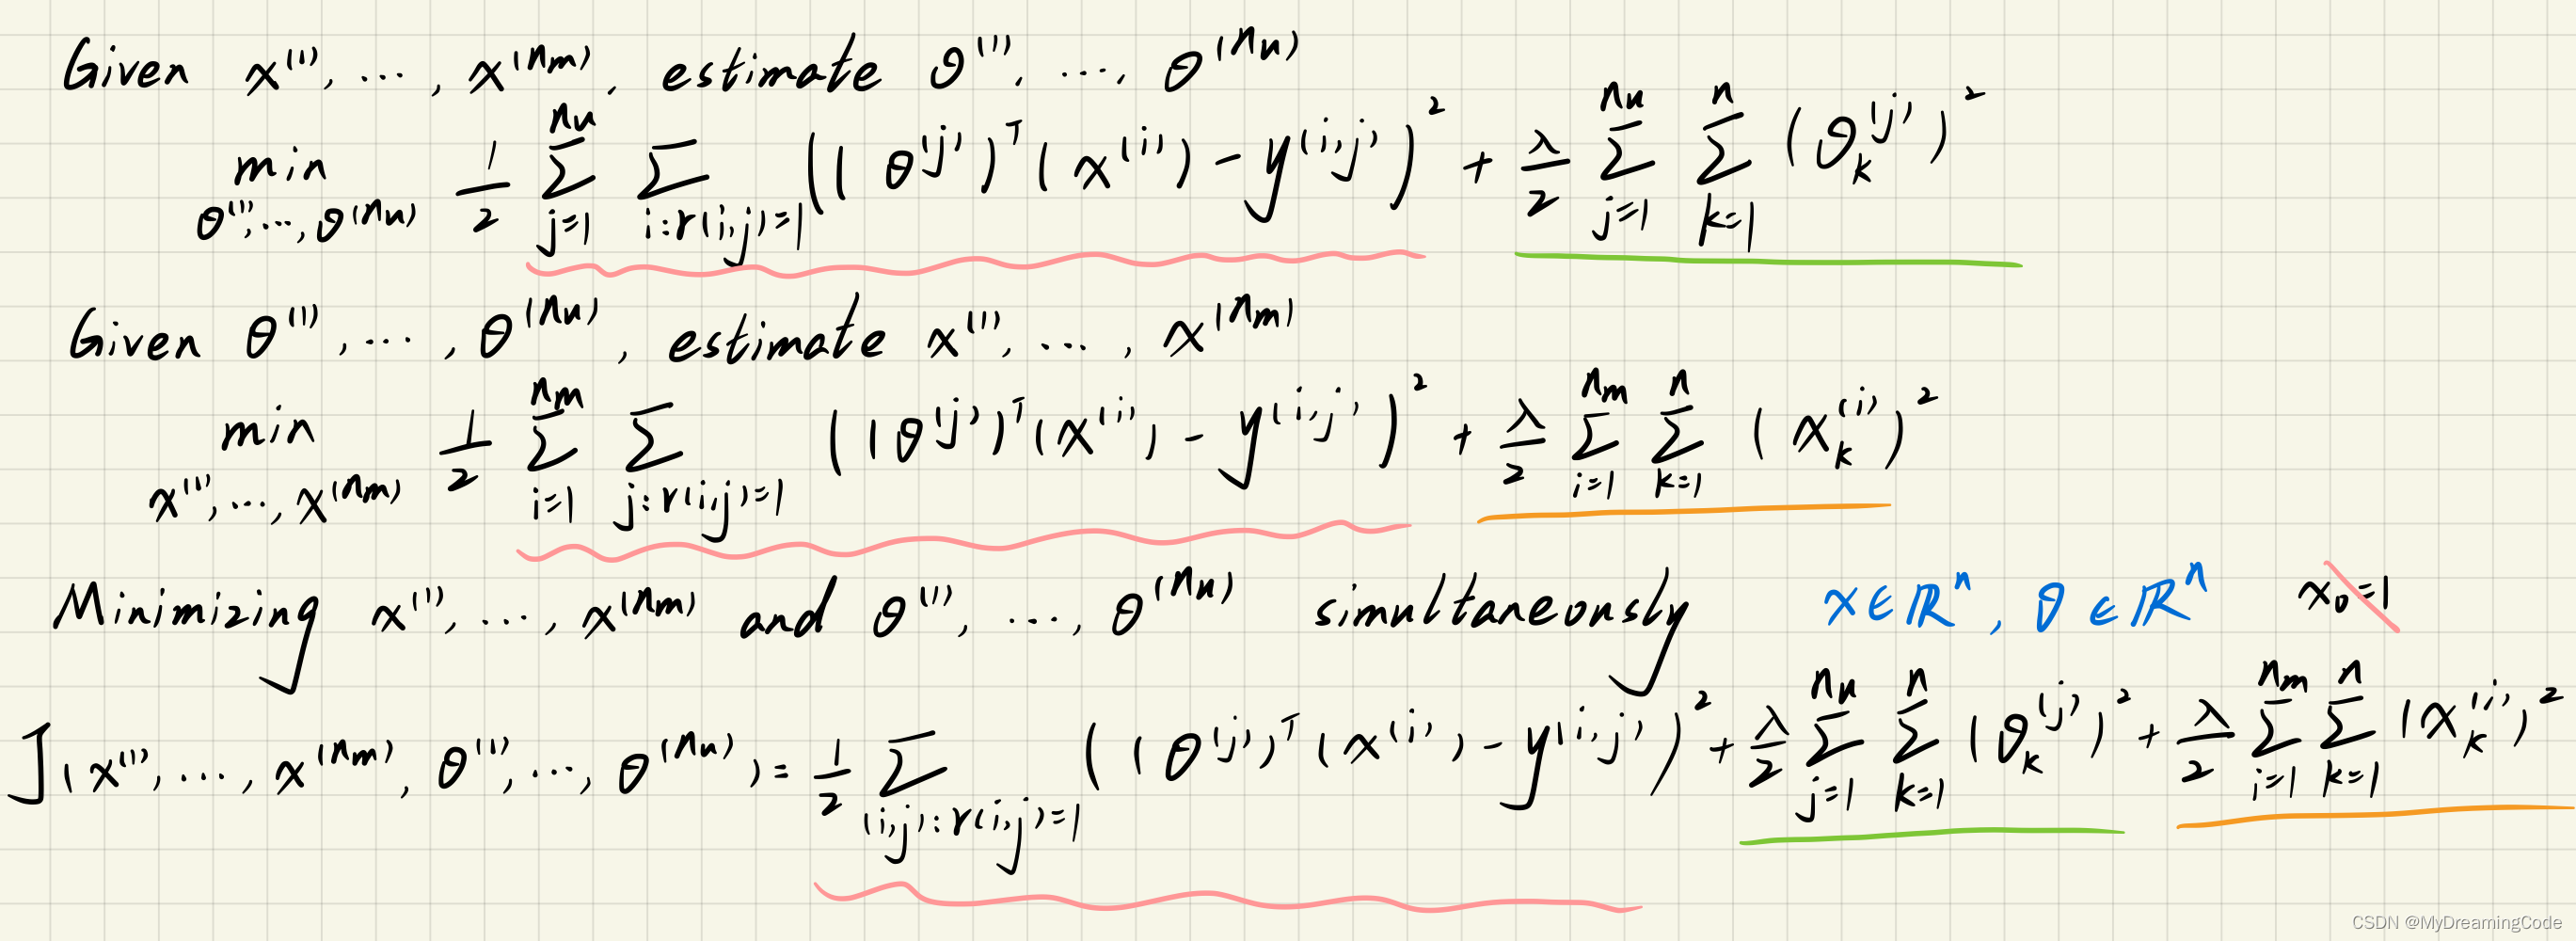 Given x^(1), ..., x^(n_m), estimate θ^(1), ..., θ^(n_u)
min_{θ^(1), ..., θ^(n_u)} 1/2 Σ_{j=1}^{n_u} Σ_{i:r(i,j)=1} ((θ^(j))^T (x^(i)) - y^(i,j))^2 + λ/2 Σ_{j=1}^{n_u} Σ_{k=1}^{n} (θ_k^(j))^2
Given θ^(1), ..., θ^(n_u), estimate x^(1), ..., x^(n_m)
min_{x^(1), ..., x^(n_m)} 1/2 Σ_{i=1}^{n_m} Σ_{j:r(i,j)=1} ((θ^(j))^T (x^(i)) - y^(i,j))^2 + λ/2 Σ_{i=1}^{n_m} Σ_{k=1}^{n} (x_k^(i))^2
Minimizing x^(1), ..., x^(n_m) and θ^(1), ..., θ^(n_u) simultaneously x∈ℝ^n, θ∈ℝ^n x_0=1
J(x^(1), ..., x^(n_m), θ^(1), ..., θ^(n_u)) = 1/2 Σ_{(i,j):r(i,j)=1} ((θ^(j))^T (x^(i)) - y^(i,j))^2 + λ/2 Σ_{j=1}^{n_u} Σ_{k=1}^{n} (θ_k^(j))^2 + λ/2 Σ_{i=1}^{n_m} Σ_{k=1}^{n} (x_k^(i))^2
CSDN @MyDreamingCode